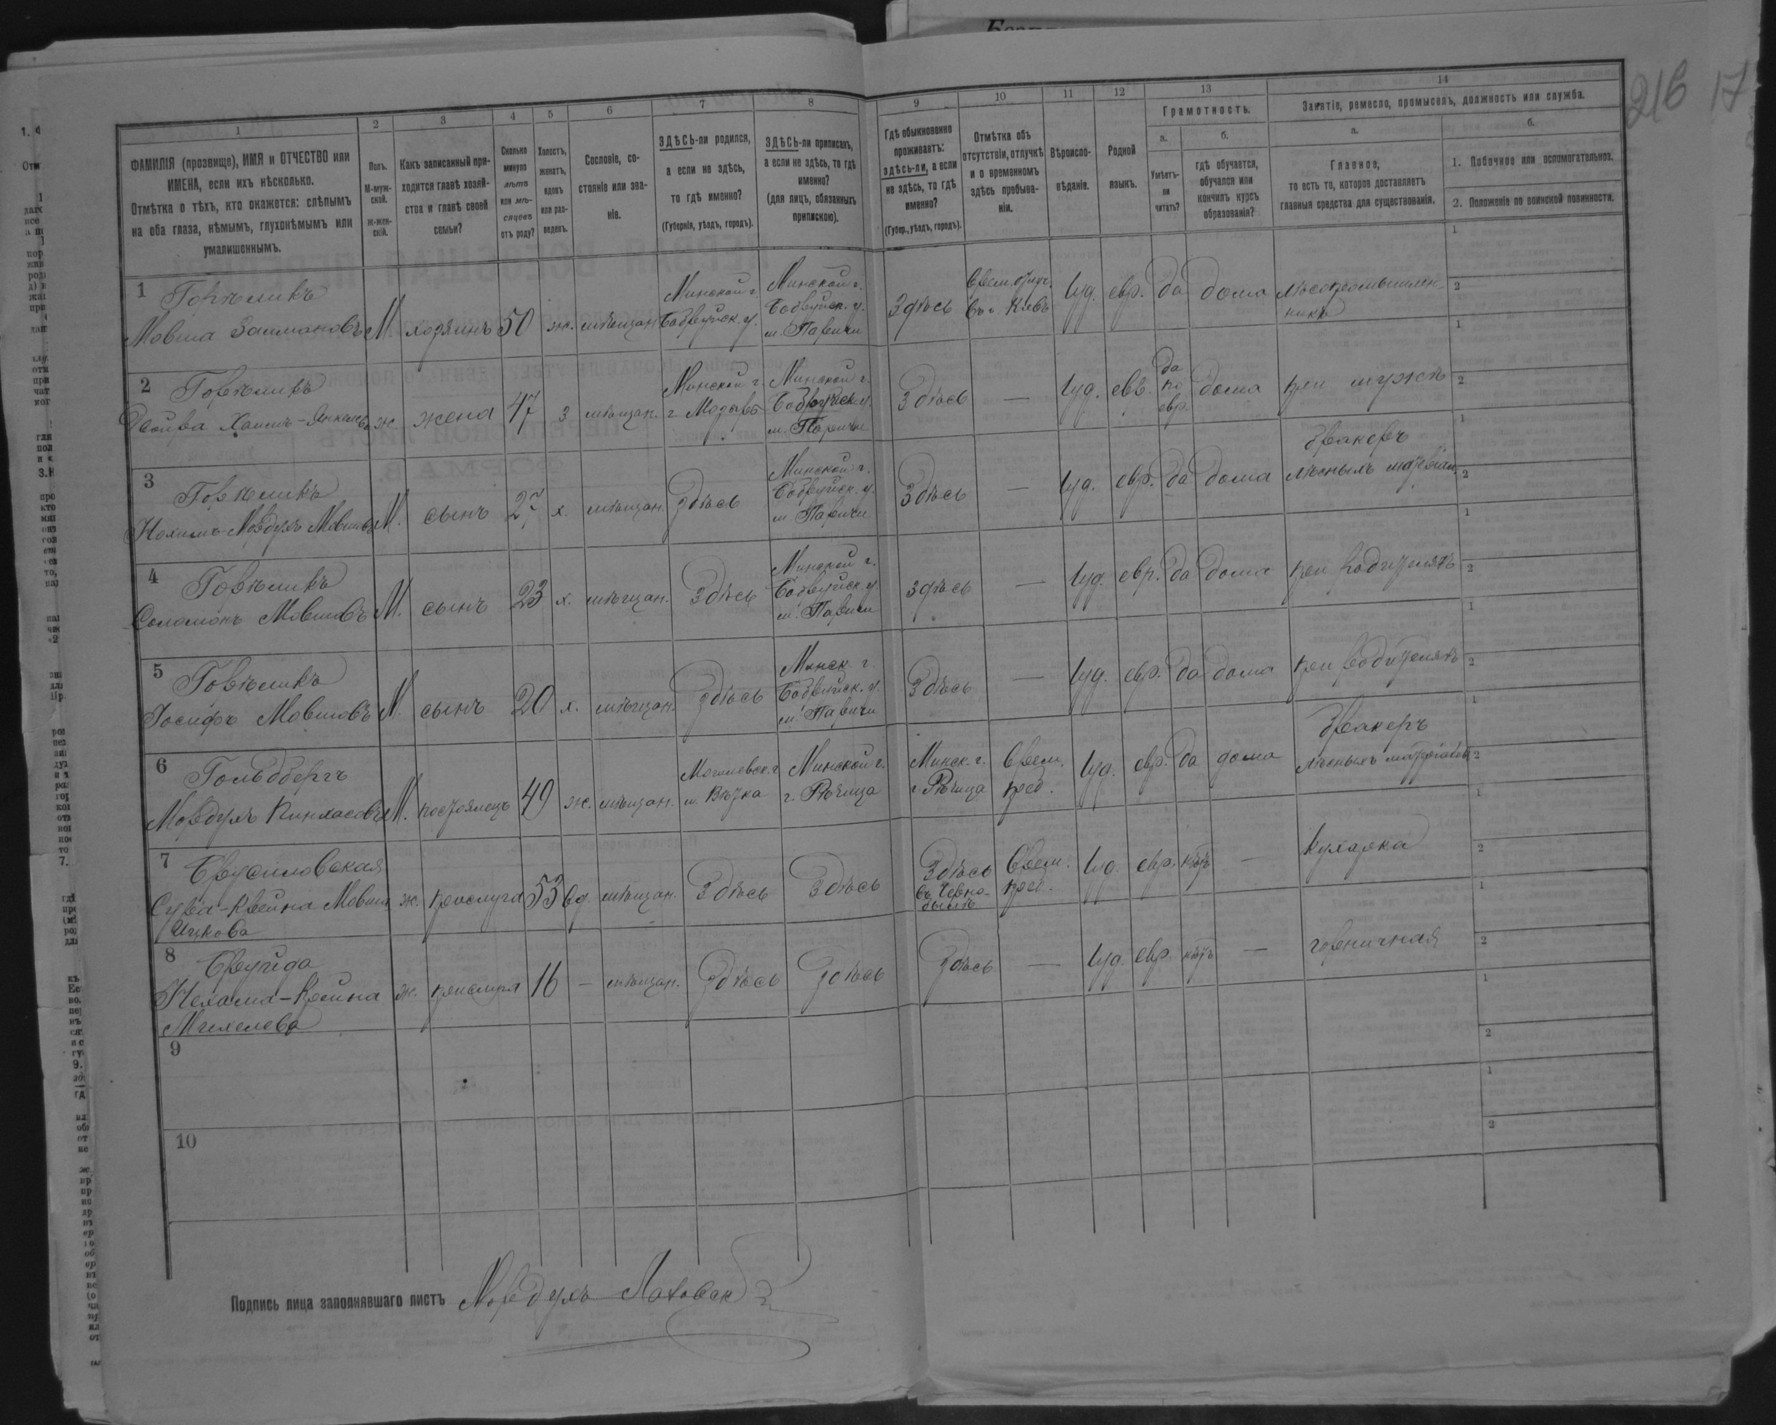 216 17
1 2 3 4 5 6 7 8 9 10 11 12 13 14
ФАМИЛІЯ (прозвище), ИМЯ и ОТЧЕСТВО или
ИМЕНА, если ихъ нѣсколько.
Отмѣтка о тѣхъ, кто окажется: слѣпымъ
на оба глаза, нѣмымъ, глухонѣмымъ или
умалишеннымъ.
Полъ.
М-муж-
ской.
Ж-жен-
скій.
Какъ записанный при-
ходится главѣ хозяй-
ства и главѣ своей
семьи?
Сколько
минуло
лѣтъ
или мѣ-
сяцевъ
отъ роду?
Холостъ,
женатъ,
вдовъ
или раз-
веденъ.
Сословіе, со-
стояніе или зва-
ніе.
ЗДѢСЬ-ли родился,
а если не здѣсь,
то гдѣ именно?
(Губернія, уѣздъ, городъ).
ЗДѢСЬ-ли приписанъ,
а если не здѣсь, то гдѣ
именно?
(для лицъ, обязанныхъ
припискою).
Гдѣ обыкновенно
проживаетъ:
здѣсь-ли, а если
не здѣсь, то гдѣ
именно?
(Губер., уѣздъ, городъ).
Отмѣтка объ
отсутствіи, отлучкѣ
и о временномъ
здѣсь пребыва-
ніи.
Вѣроиспо-
вѣданіе.
Родной
языкъ.
Грамотность.
а.
Умѣетъ-
ли
читать?
б.
гдѣ обучается,
обучался или
кончилъ курсъ
образованія?
Занятіе, ремесло, промыселъ, должность или служба.
а.
Главное,
то есть то, которое доставляетъ
главныя средства для существованія.
б.
1. Побочное или вспомогательное.
2. Положеніе по воинской повинности.
1 Горѣликъ
Мовша Залмановъ М. хозяинъ 50 ж. мѣщан. Минской г. Бобруйск. у. Минской г. Бобруйск. у. м. Паричи Здѣсь Врем. отлуч. въ г. Кіевъ Іуд. евр. да дома лѣсопромышлен-
никъ
2 Горѣликъ
Двойра ж. жена 47 з. мѣщан. Минской г. г. Мозырь Минской г. Бобруйск. у. м. Паричи Здѣсь — Іуд. евр. да по евр. дома при мужѣ
3 Горѣликъ
Нохимъ-Мордухъ Мовшовъ М. сынъ 27 х. мѣщан. Здѣсь Минской г. Бобруйск. у. м. Паричи Здѣсь — Іуд. евр. да дома бракеръ
лѣсныхъ матеріал.
4 Горѣликъ
Соломонъ Мовшовъ М. сынъ 23 х. мѣщан. Здѣсь Минской г. Бобруйск. у. м. Паричи здѣсь — Іуд. евр. да дома при родителяхъ
5 Горѣликъ
Іосифъ Мовшовъ М. сынъ 20 х. мѣщан. Здѣсь Минск. г. Бобруйск. у. м. Паричи Здѣсь — Іуд. евр. да дома при родителяхъ
6 Гольдбергъ
Мордухъ Пинхасовъ М. постоялецъ 49 ж. мѣщан. Могилевск. г. м. Вѣтка Минской г. г. Рѣчица Минск. г. г. Рѣчица Врем. преб. Іуд. евр. да дома бракеръ
лѣсныхъ матеріаловъ
7 Брусиловская
Сура-Крейна Мовша
Ицкова ж. прислуга 53 вд. мѣщан. Здѣсь Здѣсь Здѣсь въ Черно-
былѣ Врем. преб. Іуд. евр. нѣтъ — кухарка
8
Нехама-Крейна
Михелева ж. прислуга 16 — мѣщан. Здѣсь Здѣсь Здѣсь — Іуд. евр. нѣтъ — горничная
9
10
Подпись лица заполнявшаго листъ Мордухъ